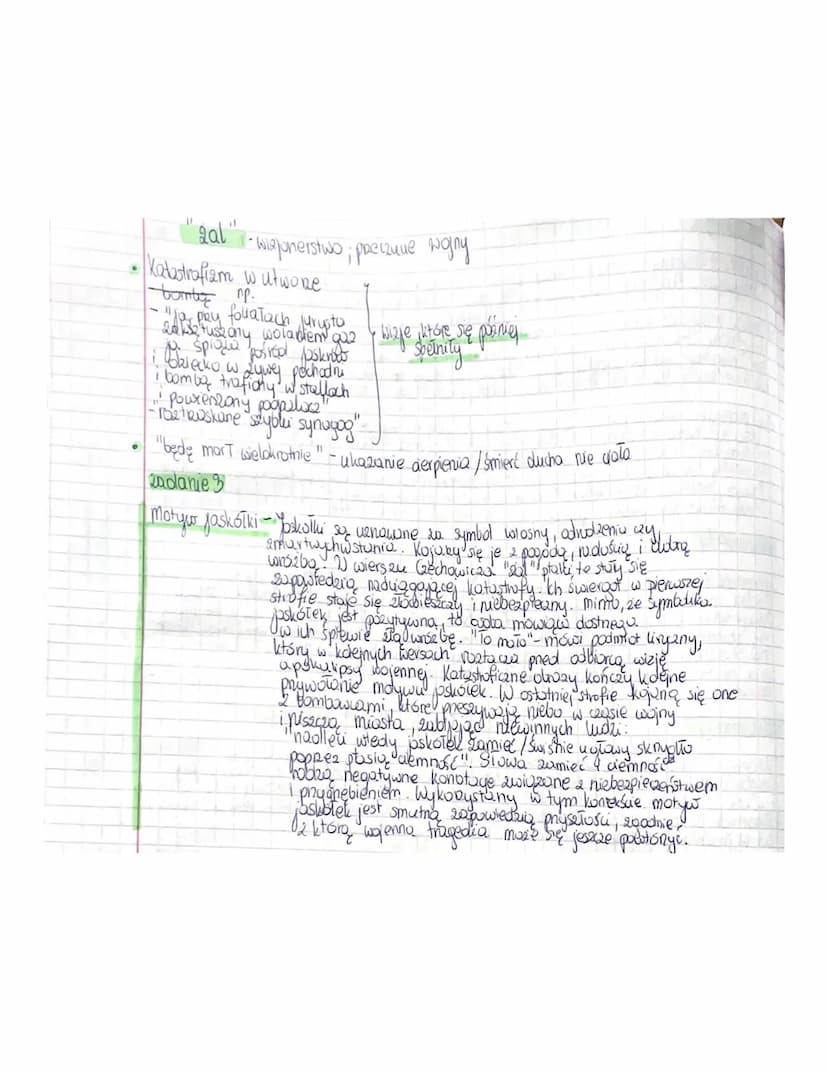 "żal" - wizjonerstwo, poczucie wojny
• Katastrofizm w utworze
bombę np.
- "ja przy foliałach jurysta
zakrztuszony wołaniem gaz
ja śpiąca pośród jaskrów
i dziecko w żywej pochodni
i bombą trafiony w stallach
i powieszony podpalacz"
- "roztrzaskane szybki synagog"
wizje, które się później
spełniły
• "będę marł wielokrotnie" - ukazanie cierpienia / śmierć ducha nie ciała
zadanie 3
Motyw jaskółki - Jaskółki są uznawane za symbol wiosny, odrodzenia czy
zmartwychwstania. Kojarzy się je z pogodą, radością i dobrą
wróżbą. W wierszu Czechowicza "żal" ptaki te stały się
zapowiedzią nadciągającej katastrofy. Ich świergot w pierwszej
strofie staje się złowieszczy i niebezpieczny. mimo, że symbolika
jaskółek jest pozytywna, to osoba mówiąca dostrzega
w ich śpiewie złą wróżbę. "To mało" - mówi podmiot liryczny,
który w kolejnych wersach roztacza przed odbiorcą wizję
apokalipsy wojennej. Katastroficzne obrazy kończy kolejne
przywołanie motywu jaskółek. W ostatniej strofie kojarzą się one
z bombowcami, które przeszywają niebo w czasie wojny
i niszczą miasta, zabijając niewinnych ludzi:
"nadleci wtedy jaskółek zamieć / świśnie u głowy skrzydło
poprzez ptasią ciemność". Słowa zamieć i ciemność
rodzą negatywne konotacje związane z niebezpieczeństwem
i przygnębieniem. Wykorzystany w tym kontekście motyw
jaskółek jest smutną zapowiedzią przyszłości, zgodnie
z którą wojenna tragedia może się jeszcze powtórzyć.